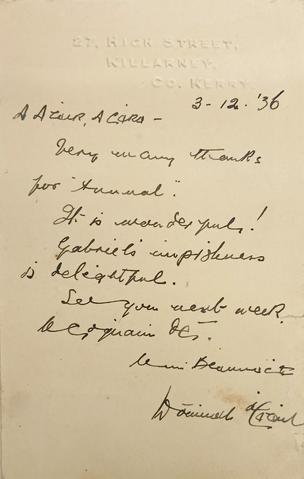 27, HIGH STREET,
KILLARNEY,
CO. KERRY
3-12-'36
A Azur, A Cara –
Very many thanks
for "Annual".
It is wonderful!
Gabriel's impishness
is delightful.
See you next week
le